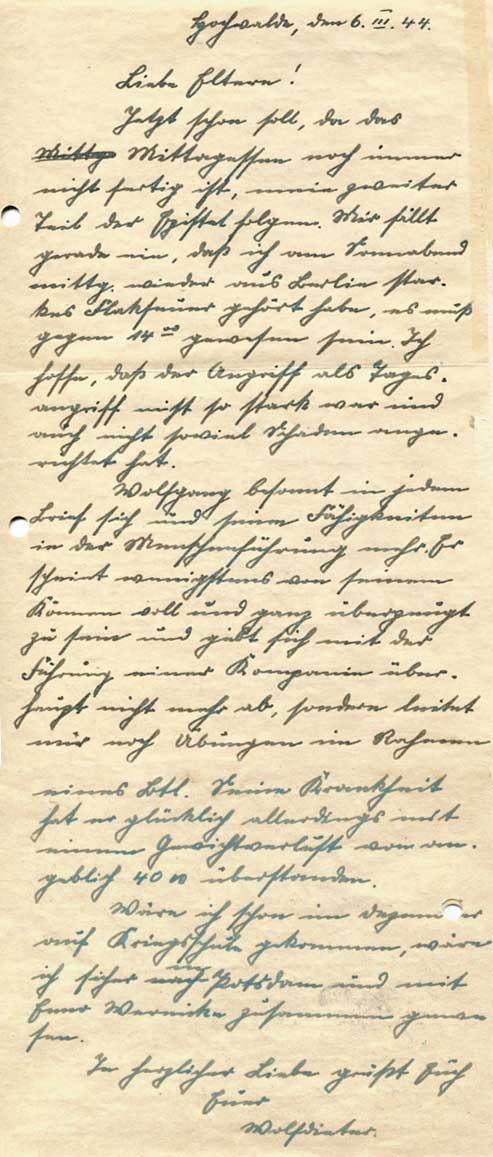 Hochwalde, den 6. III. 44.
Liebe Eltern!
Jetzt schon soll, da das
Mittg Mittagessen noch immer
nicht fertig ist, mein zweiter
Teil der Epistel folgen. Mir fällt
gerade ein, daß ich am Sonnabend
mittg. wieder aus Berlin star-
kes Flakfeuer gehört habe, es muß
gegen 14 00 gewesen sein. Ich
hoffe, daß der Angriff als Tages-
angriff nicht so stark war und
auch nicht soviel Schaden ange-
richtet hat.
Wolfgang betont in jedem
Brief sich und seine Fähigkeiten
in der Menschenführung mehr. Er
scheint wenigstens von seinem
Können voll und ganz überzeugt
zu sein und gibt sich mit der
Führung einer Kompanie über-
haupt nicht mehr ab, sondern leitet
nur noch Übungen im Rahmen
eines Btl. Seine Krankheit
hat er glücklich allerdings mit
einem Gewichtverlust von an-
geblich 40 überstanden.
Wäre ich schon im Dezember
auf Kriegsschule gekommen, wäre
ich sicher nach in Potsdam und mit
Wernicke zusammen gewe
sen.
In herzlicher Liebe grüßt Euch
Euer
Wolfdieter.